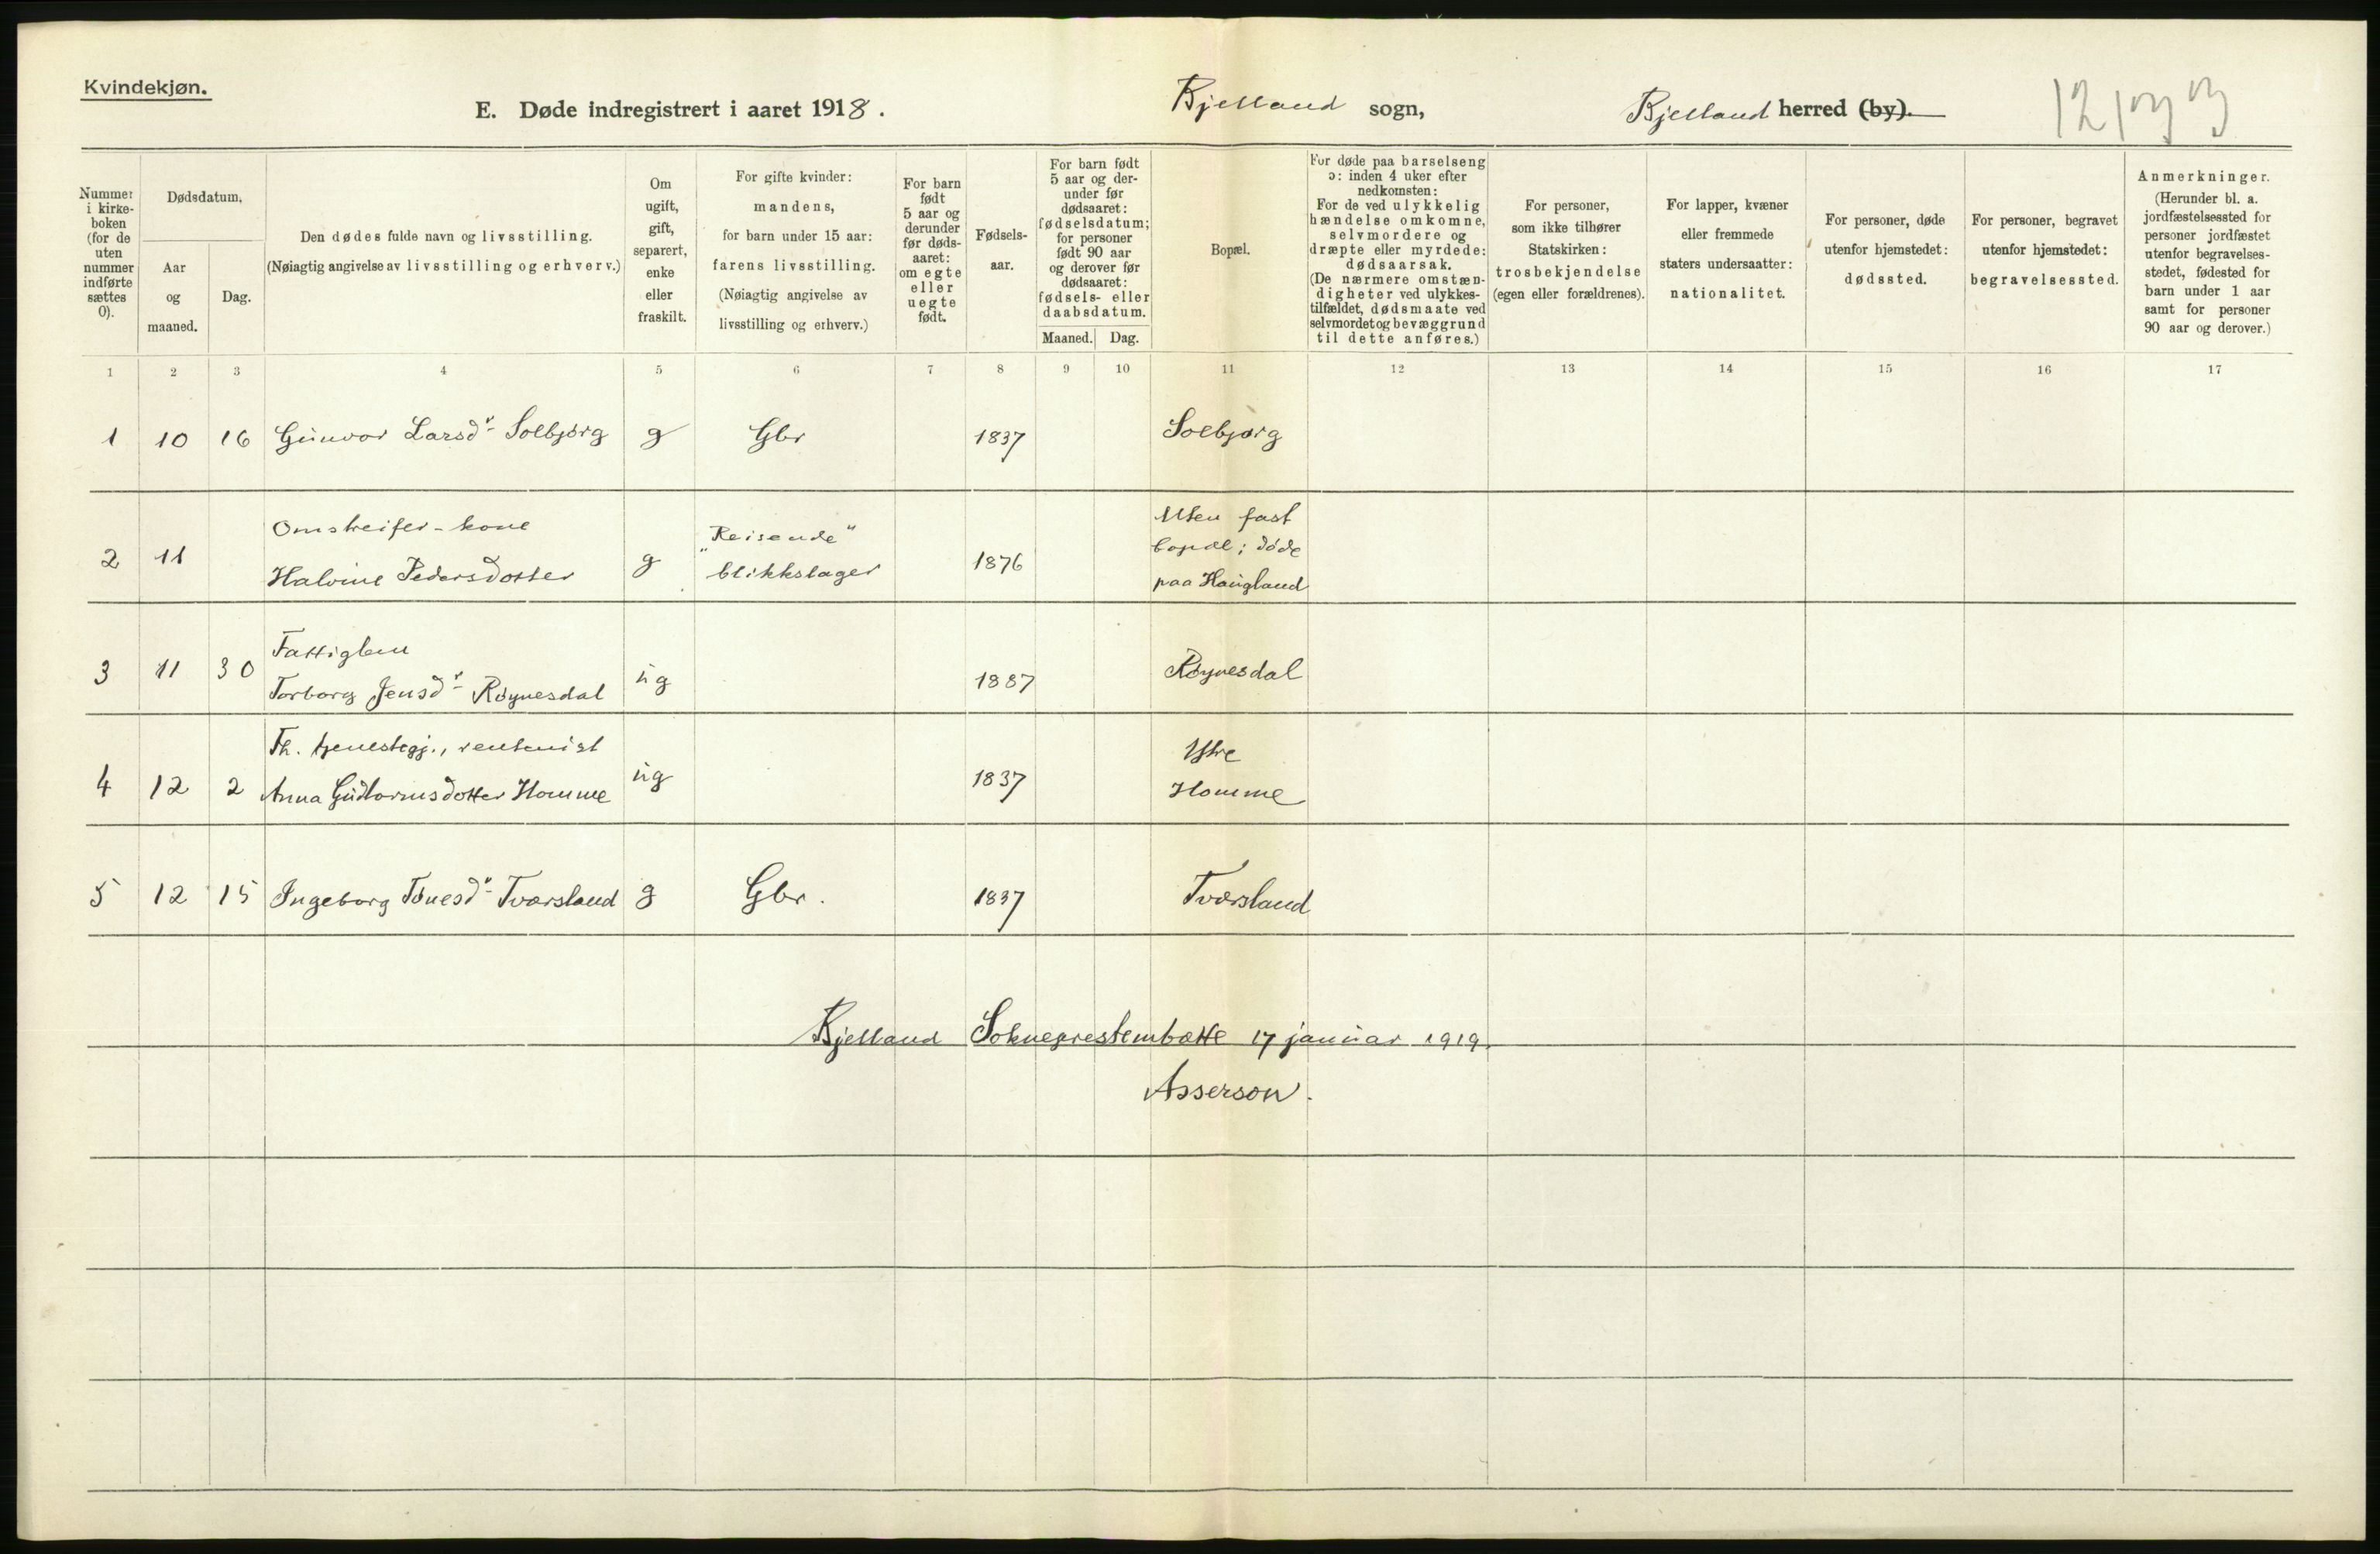 Kvindekjøn.
E. Døde indregistrert i aaret 1918. Bjelland sogn, Bjelland herred (by).
Nummer i kirke-boken (for de uten nummer indførte sættes 0).
Dødsdatum.
Aar og maaned.
Dag.
Den dødes fulde navn og livsstilling.
(Nøiagtig angivelse av livsstilling og erhverv.)
Om ugift, gift, separert, enke eller fraskilt.
For gifte kvinder: mandens, for barn under 15 aar: farens livsstilling. (Nøiagtig angivelse av livsstilling og erhverv.)
For barn født 5 aar og derunder før døds-aaret: om egte eller uegte født.
Fødsels-aar.
For barn født 5 aar og der-under før dødsaaret: fødselsdatum; for personer født 90 aar og derover før dødsaaret: fødsels- eller daabsdatum.
Maaned. Dag.
Bopæl.
For døde paa barselseng ɔ: inden 4 uker efter nedkomsten: For de ved ulykkelig hændelse omkomne, selvmordere og dræpte eller myrdede: dødsaarsak. (De nærmere omstæn-digheter ved ulykkes-tilfældet, dødsmaate ved selvmordet og bevæggrund til dette anføres.)
For personer, som ikke tilhører Statskirken: trosbekjendelse (egen eller forældrenes).
For lapper, kvæner eller fremmede staters undersaatter: nationalitet.
For personer, døde utenfor hjemstedet: dødssted.
For personer, begravet utenfor hjemstedet: begravelsessted.
Anmerkninger. (Herunder bl. a. jordfæstelsessted for personer jordfæstet utenfor begravelses-stedet, fødested for barn under 1 aar samt for personer 90 aar og derover.)
1 2 3 4 5 6 7 8 9 10 11 12 13 14 15 16 17
1 10 16 Gunvor Larsdr Solbjørg g Gbr 1837 Solbjørg
2 11 Omstreifer-kone
Halvine Pedersdotter g "Reisende" blikkslager 1876 Uten fast bopæl; døde paa Haugland
3 11 30 Fattiglem
Torborg Jensdr Røynesdal ug 1887 Røynesdal
4 12 2 Fh. tjenestegj., rentenist
Anna Gudtormsdotter Homme ug 1837 Ytre Homme
5 12 15 Ingeborg Tønesdr Tværsland g Gbr. 1837 Tværsland
Bjelland Sokneprestembætte 17 januar 1919.
Asserson.